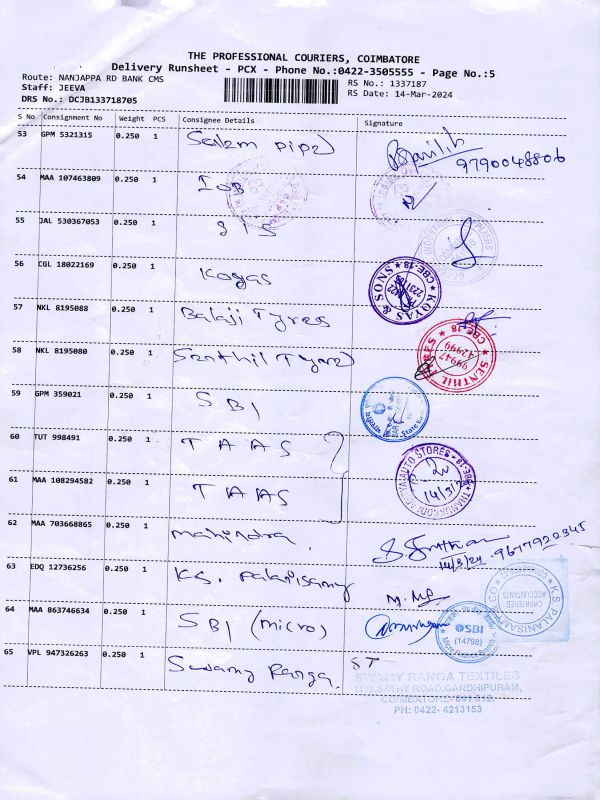 THE PROFESSIONAL COURIERS, COIMBATORE
Delivery Runsheet - PCX - Phone No.:0422-3505555 - Page No.:5
Route: NANJAPPA RD BANK CMS
RS No.: 1337187
Staff: JEEVA
RS Date: 14-Mar-2024
DRS No.: DCJB133718705
S No Consignment No Weight PCS Consignee Details Signature
53 GPM 5321315 0.250 1 Salem pipe
9790048806
54 MAA 107463809 0.250 1 IOB
55 JAL 530367053 0.250 1 SIS
56 CGL 18022169 0.250 1 Koyas
KOYAS & SONS CBE-18
57 NKL 8195088 0.250 1 Balaji Tyres
58 NKL 8195080 0.250 1 Senthil Tyre
SENTHIL CBE-18
99947
42999
59 GPM 359021 0.250 1 SBI
State
60 TUT 998491 0.250 1 TAAS
AUTO STORES
14/3/24
61 MAA 108294582 0.250 1 TAAS
62 MAA 703668865 0.250 1 mahindra
14/3/24 9677922345
63 EDQ 12736256 0.250 1 K.S. Palanisamy
K S PALANISAMY & CO
CHARTERED
ACCOUNTANTS
64 MAA 863746634 0.250 1 SBI (micro)
SBI
(14798)
65 VPL 947326263 0.250 1 Swamy Ranga ST
SWAMY RANGA TEXTILES
SATHY ROAD, GANDHIPURAM,
COIMBATORE- 641 012.
PH: 0422- 4213153